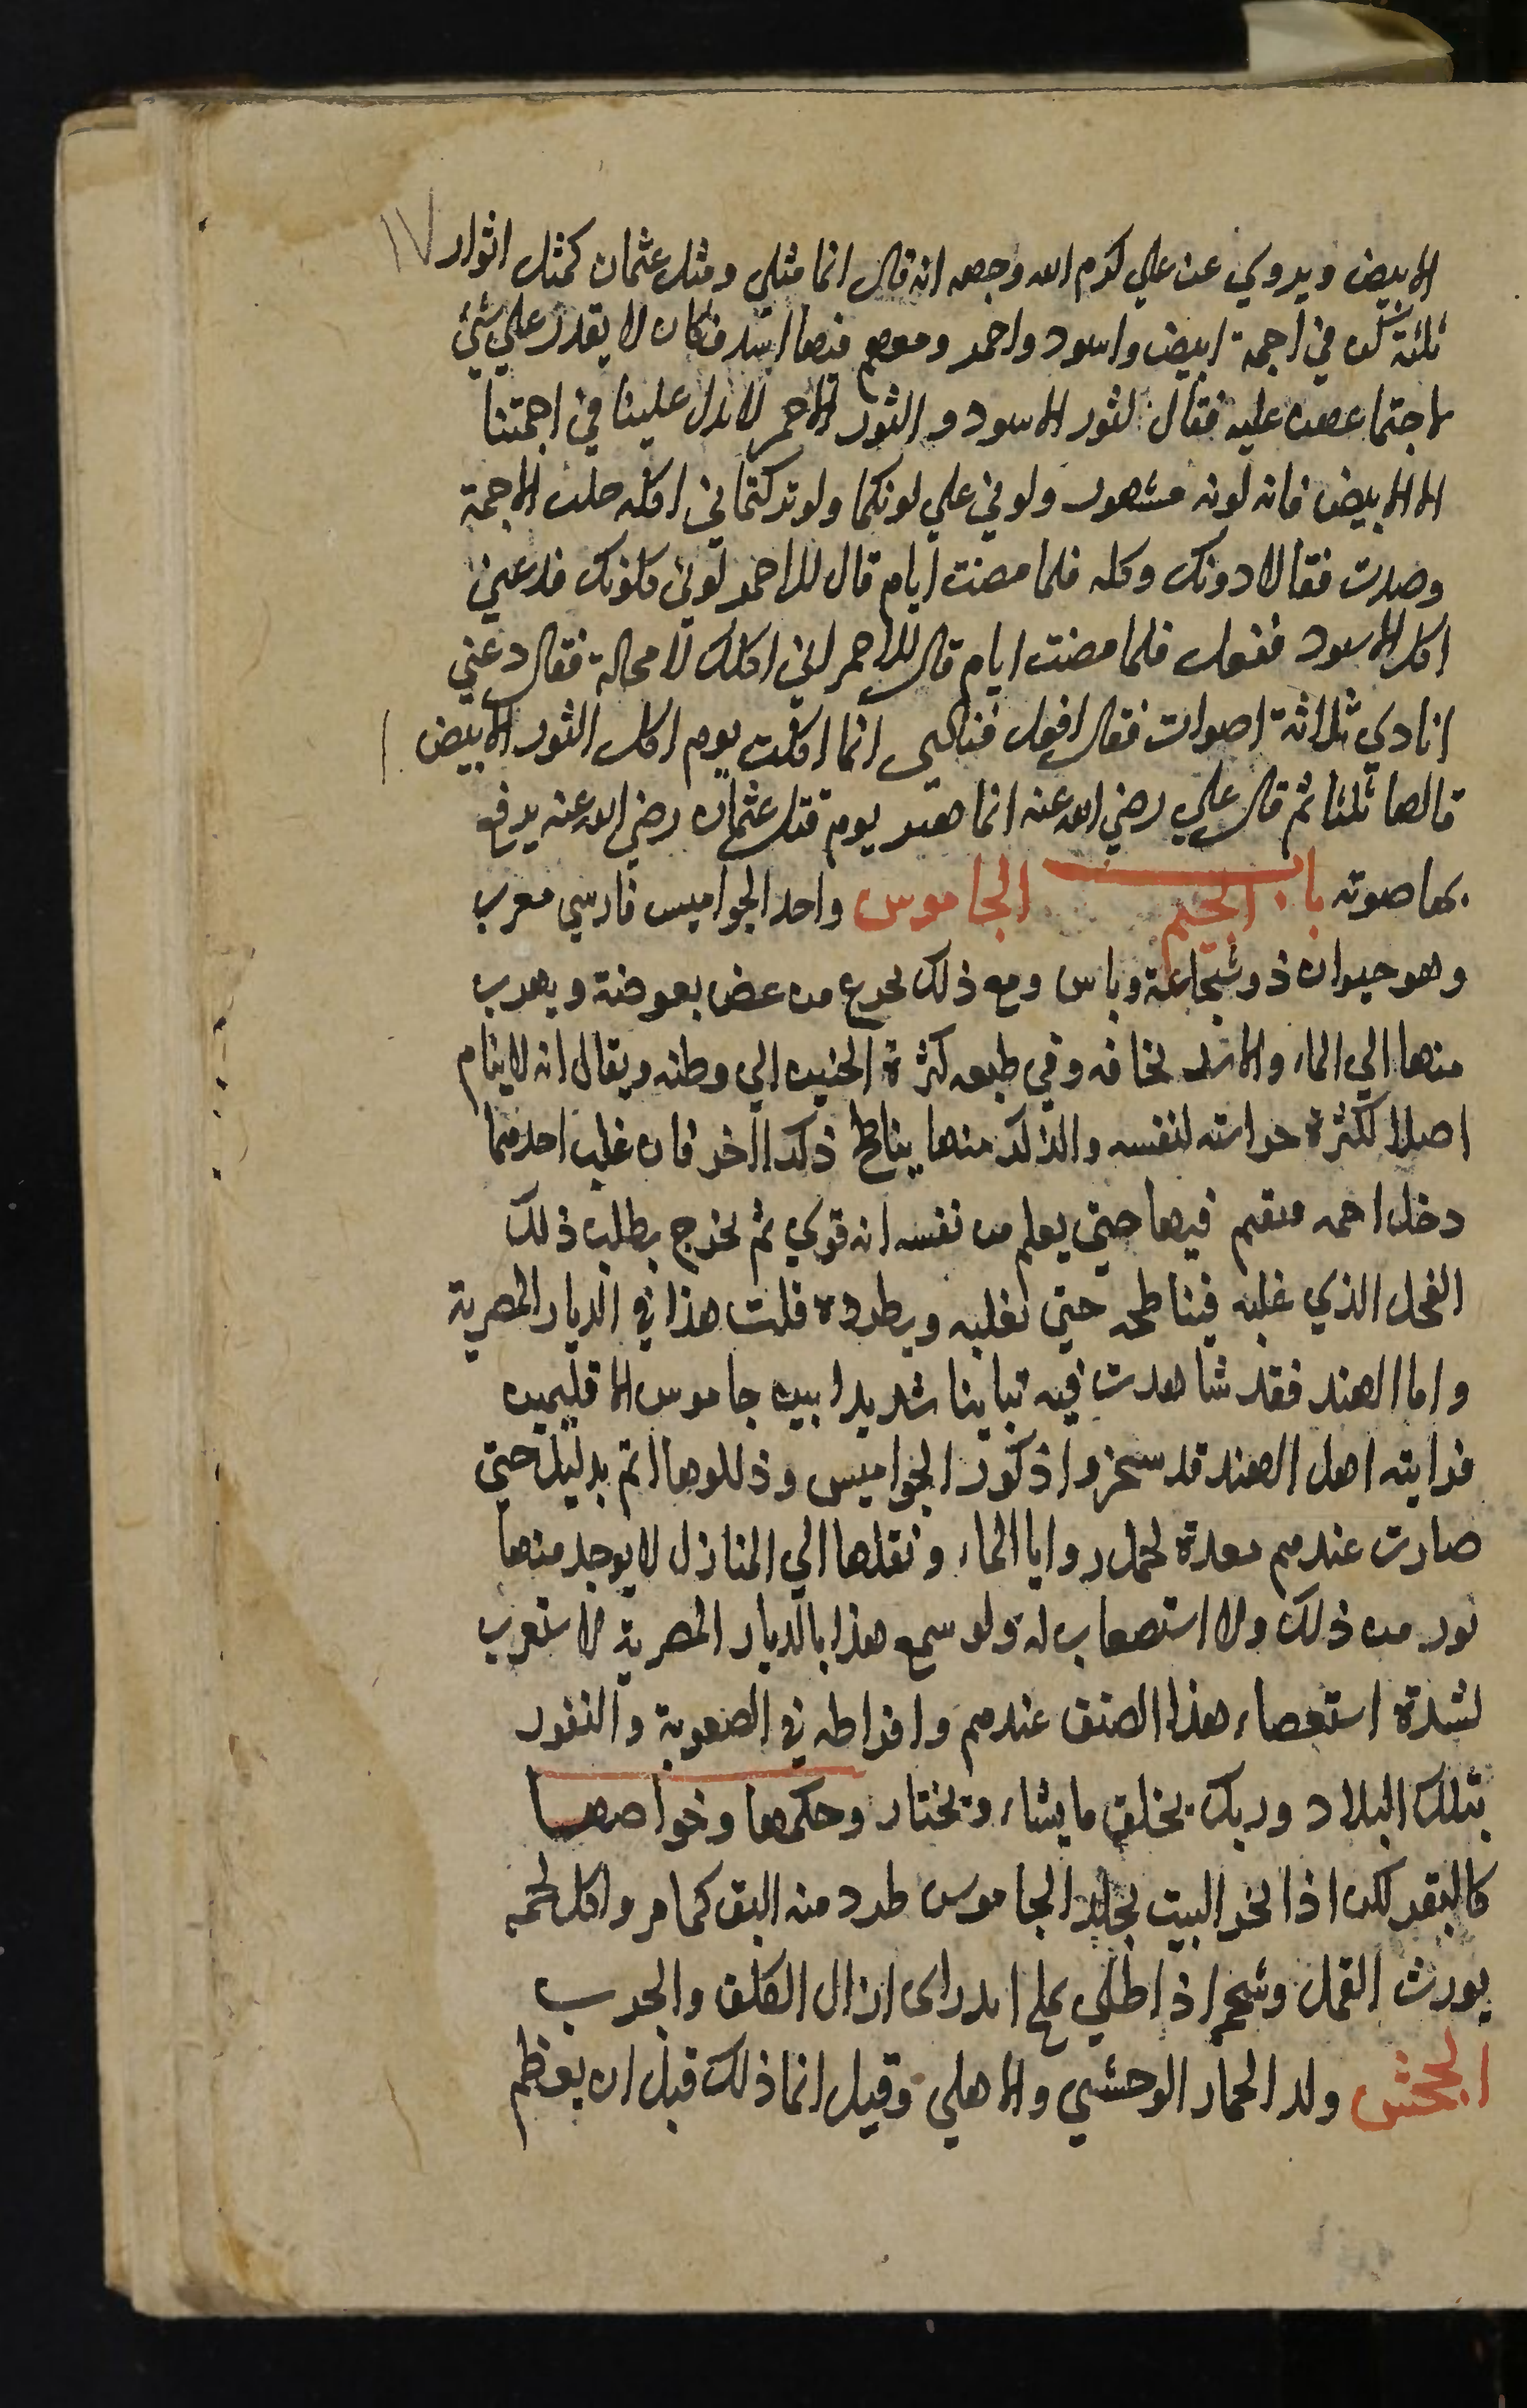 ١٧
الابيض ويروي عن علي كرم الله وجهه انه قال انما مثلي ومثل عثمان كمثل اثوار
ثلثة كن في اجمة ابيض واسود واحمر ومعهم فيها اسد فكان لا يقدر علي شيء
لاجتماعهن عليه فقال لثور الاسود والثور الاحمر لا يدل علينا في اجمتنا
الا الابيض فانه لونه مشهور ولوني علي لونكما ولو تركتماني اكله خلت الاجمة
وصدت فقالا دونك وكله فلما مضت ايام قال للاحمر لوني كلونك فدعني
اكل الاسود ففعل فلما مضت ايام قال للاحمر اني اكلك لا محالة فقال دعني
انادي ثلاثة اصوات فقال افعل فنادى انما اكلت يوم اكل الثور الابيض
قالها ثلثا ثم قال علي رضي الله عنه انما هنت يوم قتل عثمان رضي الله عنه يرفع
بها صوته باب الجيم الجاموس واحد الجواميس فارسي معرب
وهو حيوان ذو شجاعة وباس ومع ذلك يجزع من عض بعوضة ويهرب
منها الي الماء والاسد يخافه وفي طبعه كثرة الحنين الي وطنه ويقال انه لا ينام
اصلا لكثرة حراسته لنفسه والذكر منها يناطح ذكرا اخر فان غلب احدهما
دخل اجمه فيقيم فيها حتي يعلم من نفسه انه قوي ثم يخرج يطلب ذلك
الفحل الذي غلبه فيناطحه حتي يغلبه ويطرده قلت هذا في الديار المصرية
واما الهند فقد شاهدت فيه تباينا شديدا بين جاموس الاقليمين
فرايته اهل الهند قد سخروا ذكور الجواميس وذللوها اتم بدليل حتي
صارت عندهم معدة لحمل روايا الماء ونقلها الي المنازل لا يوجد منها
نور من ذلك ولا استصعاب له ولو سمع هذا بالديار المصرية لاستغرب
لشدة استعصاء هذا الصنف عندهم وافراطه في الصعوبة والنفور
بتلك البلاد وربك يخلق ما يشاء ويختار وحكمها وخواصها
كالبقر لكن اذا بخر البيت بجلد الجاموس طرد منه البق كما مر واكل لحمه
يورث القمل وشحم اذا طلي بملح اندراى ازال الكلف والجرب
الجحش ولد الحمار الوحشي والاهلي وقيل انما ذلك قبل ان يعظم